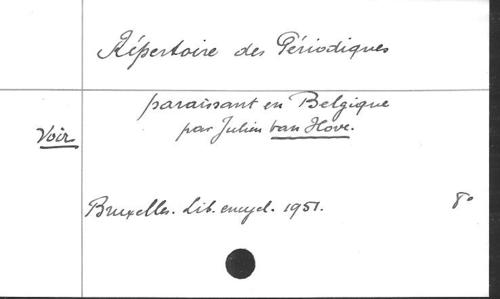 Répertoire des Périodiques
paraissant en Belgique
Voir
par Julien van Hove.
Bruxelles. Lib. encycl. 1951.
8°